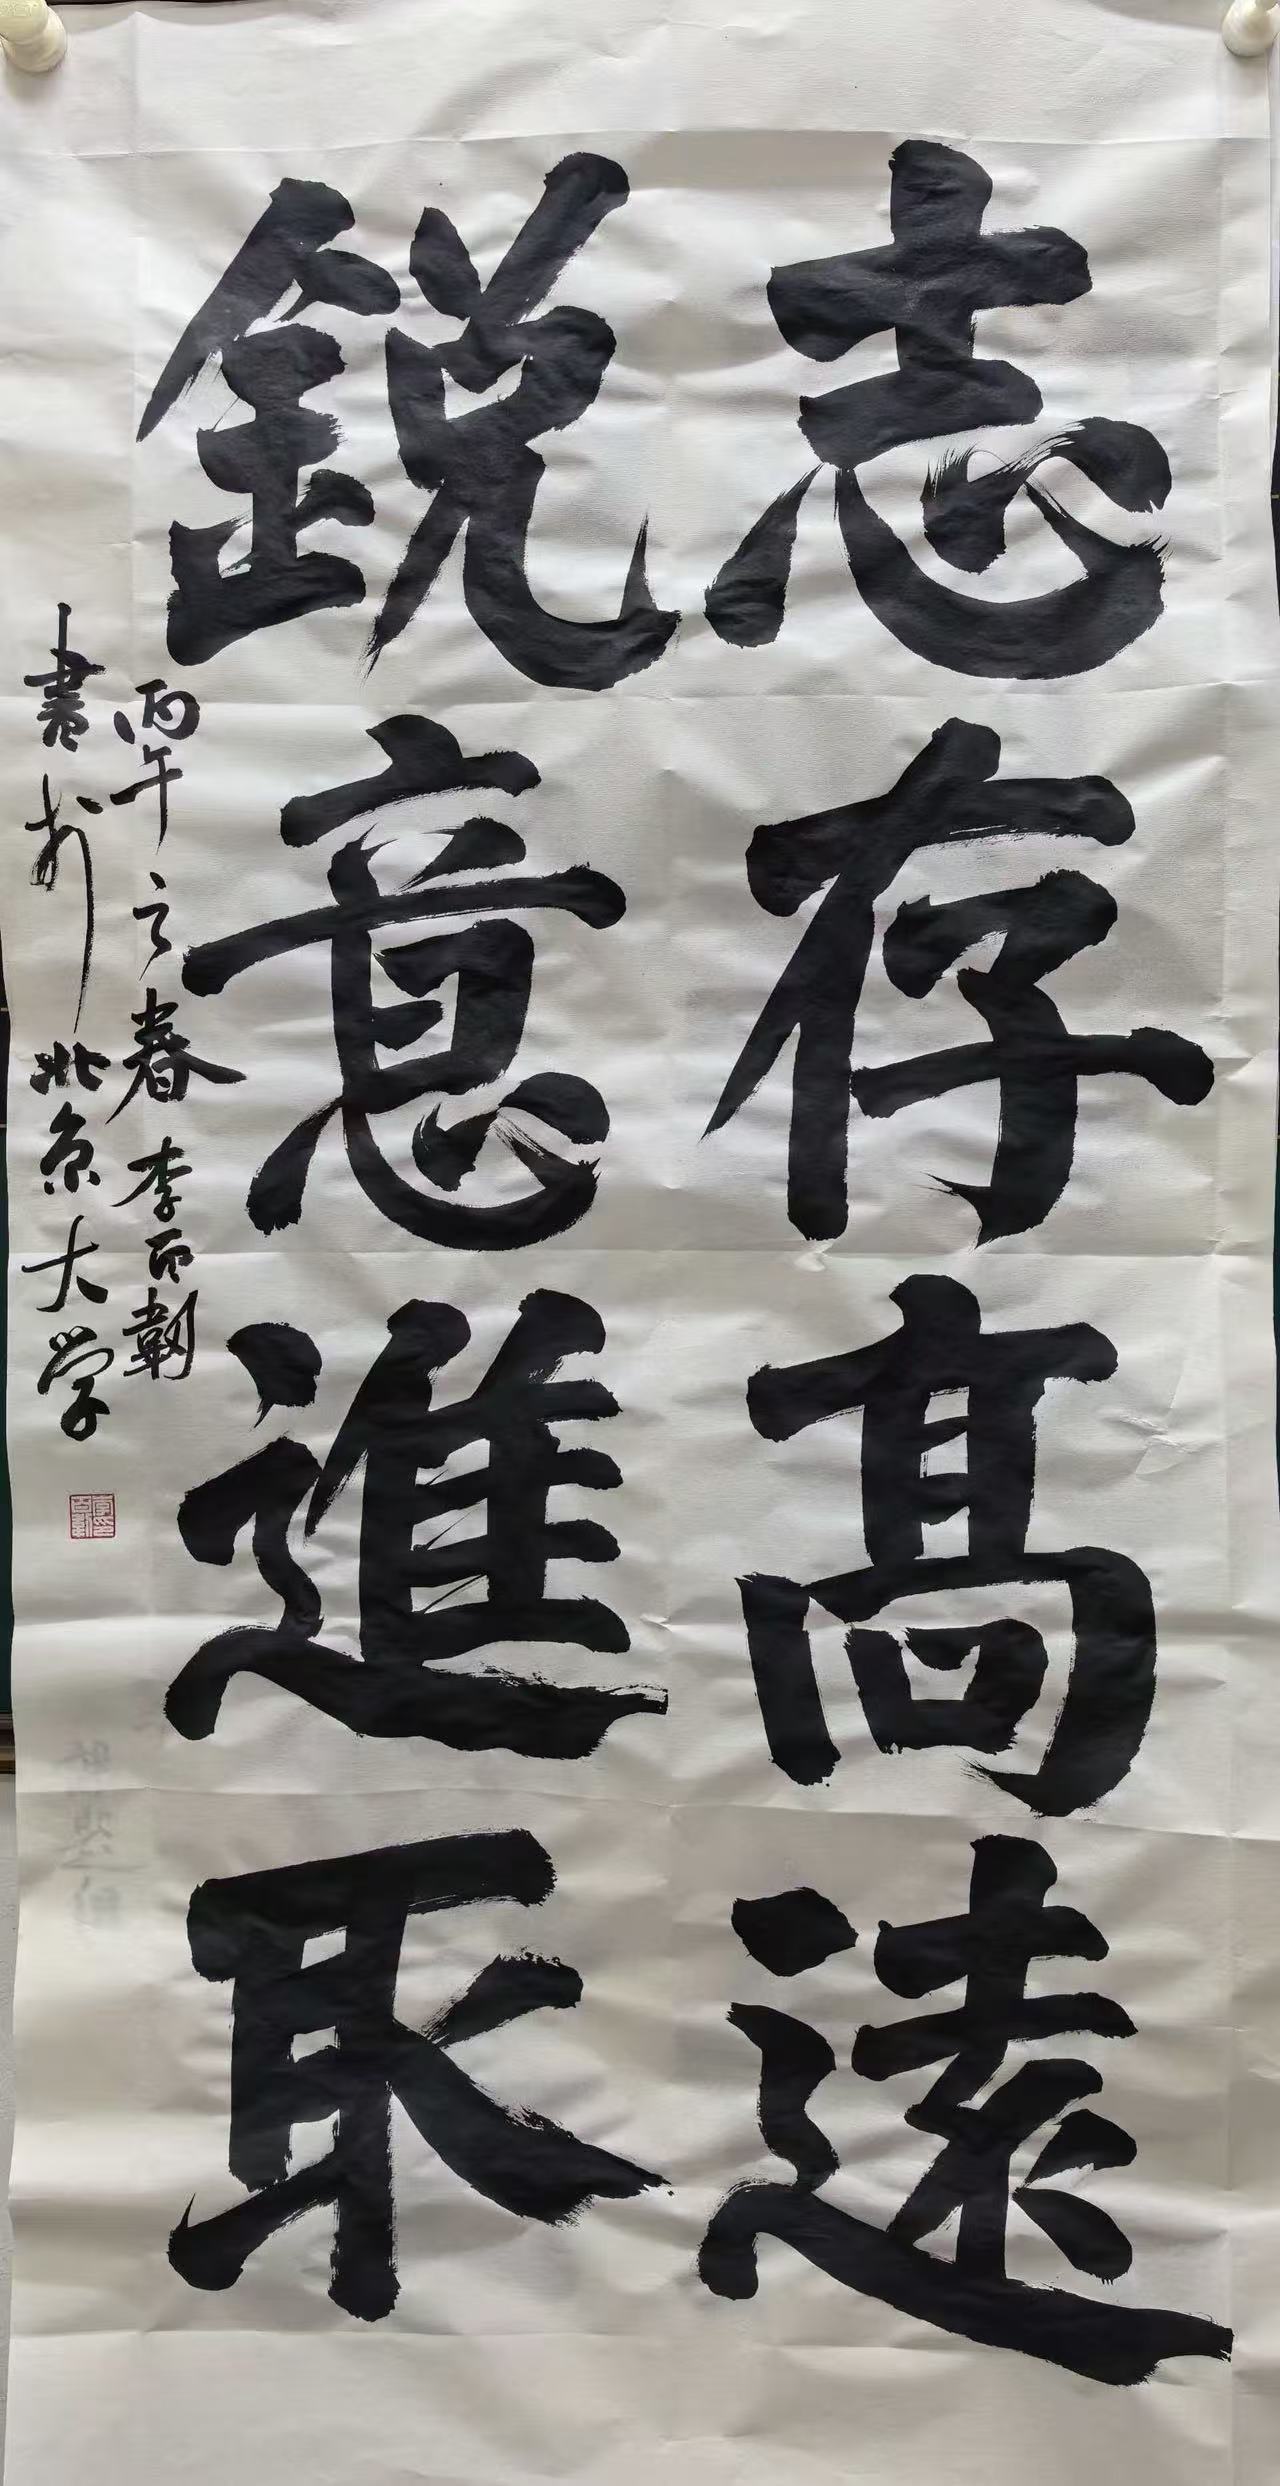 志存高遠
鋭意進取
丙午之春 李百韌
書於北京大学